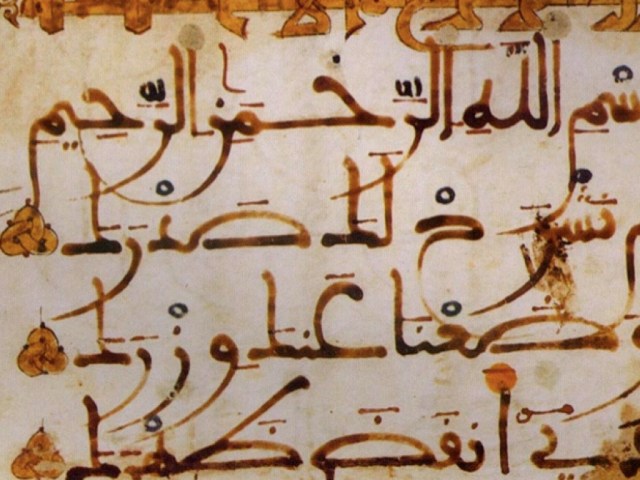 بسم الله الرحمن الرحيم
نشرح لك صدرك
وضعنا عنك وزرك
أنقض ظهرك